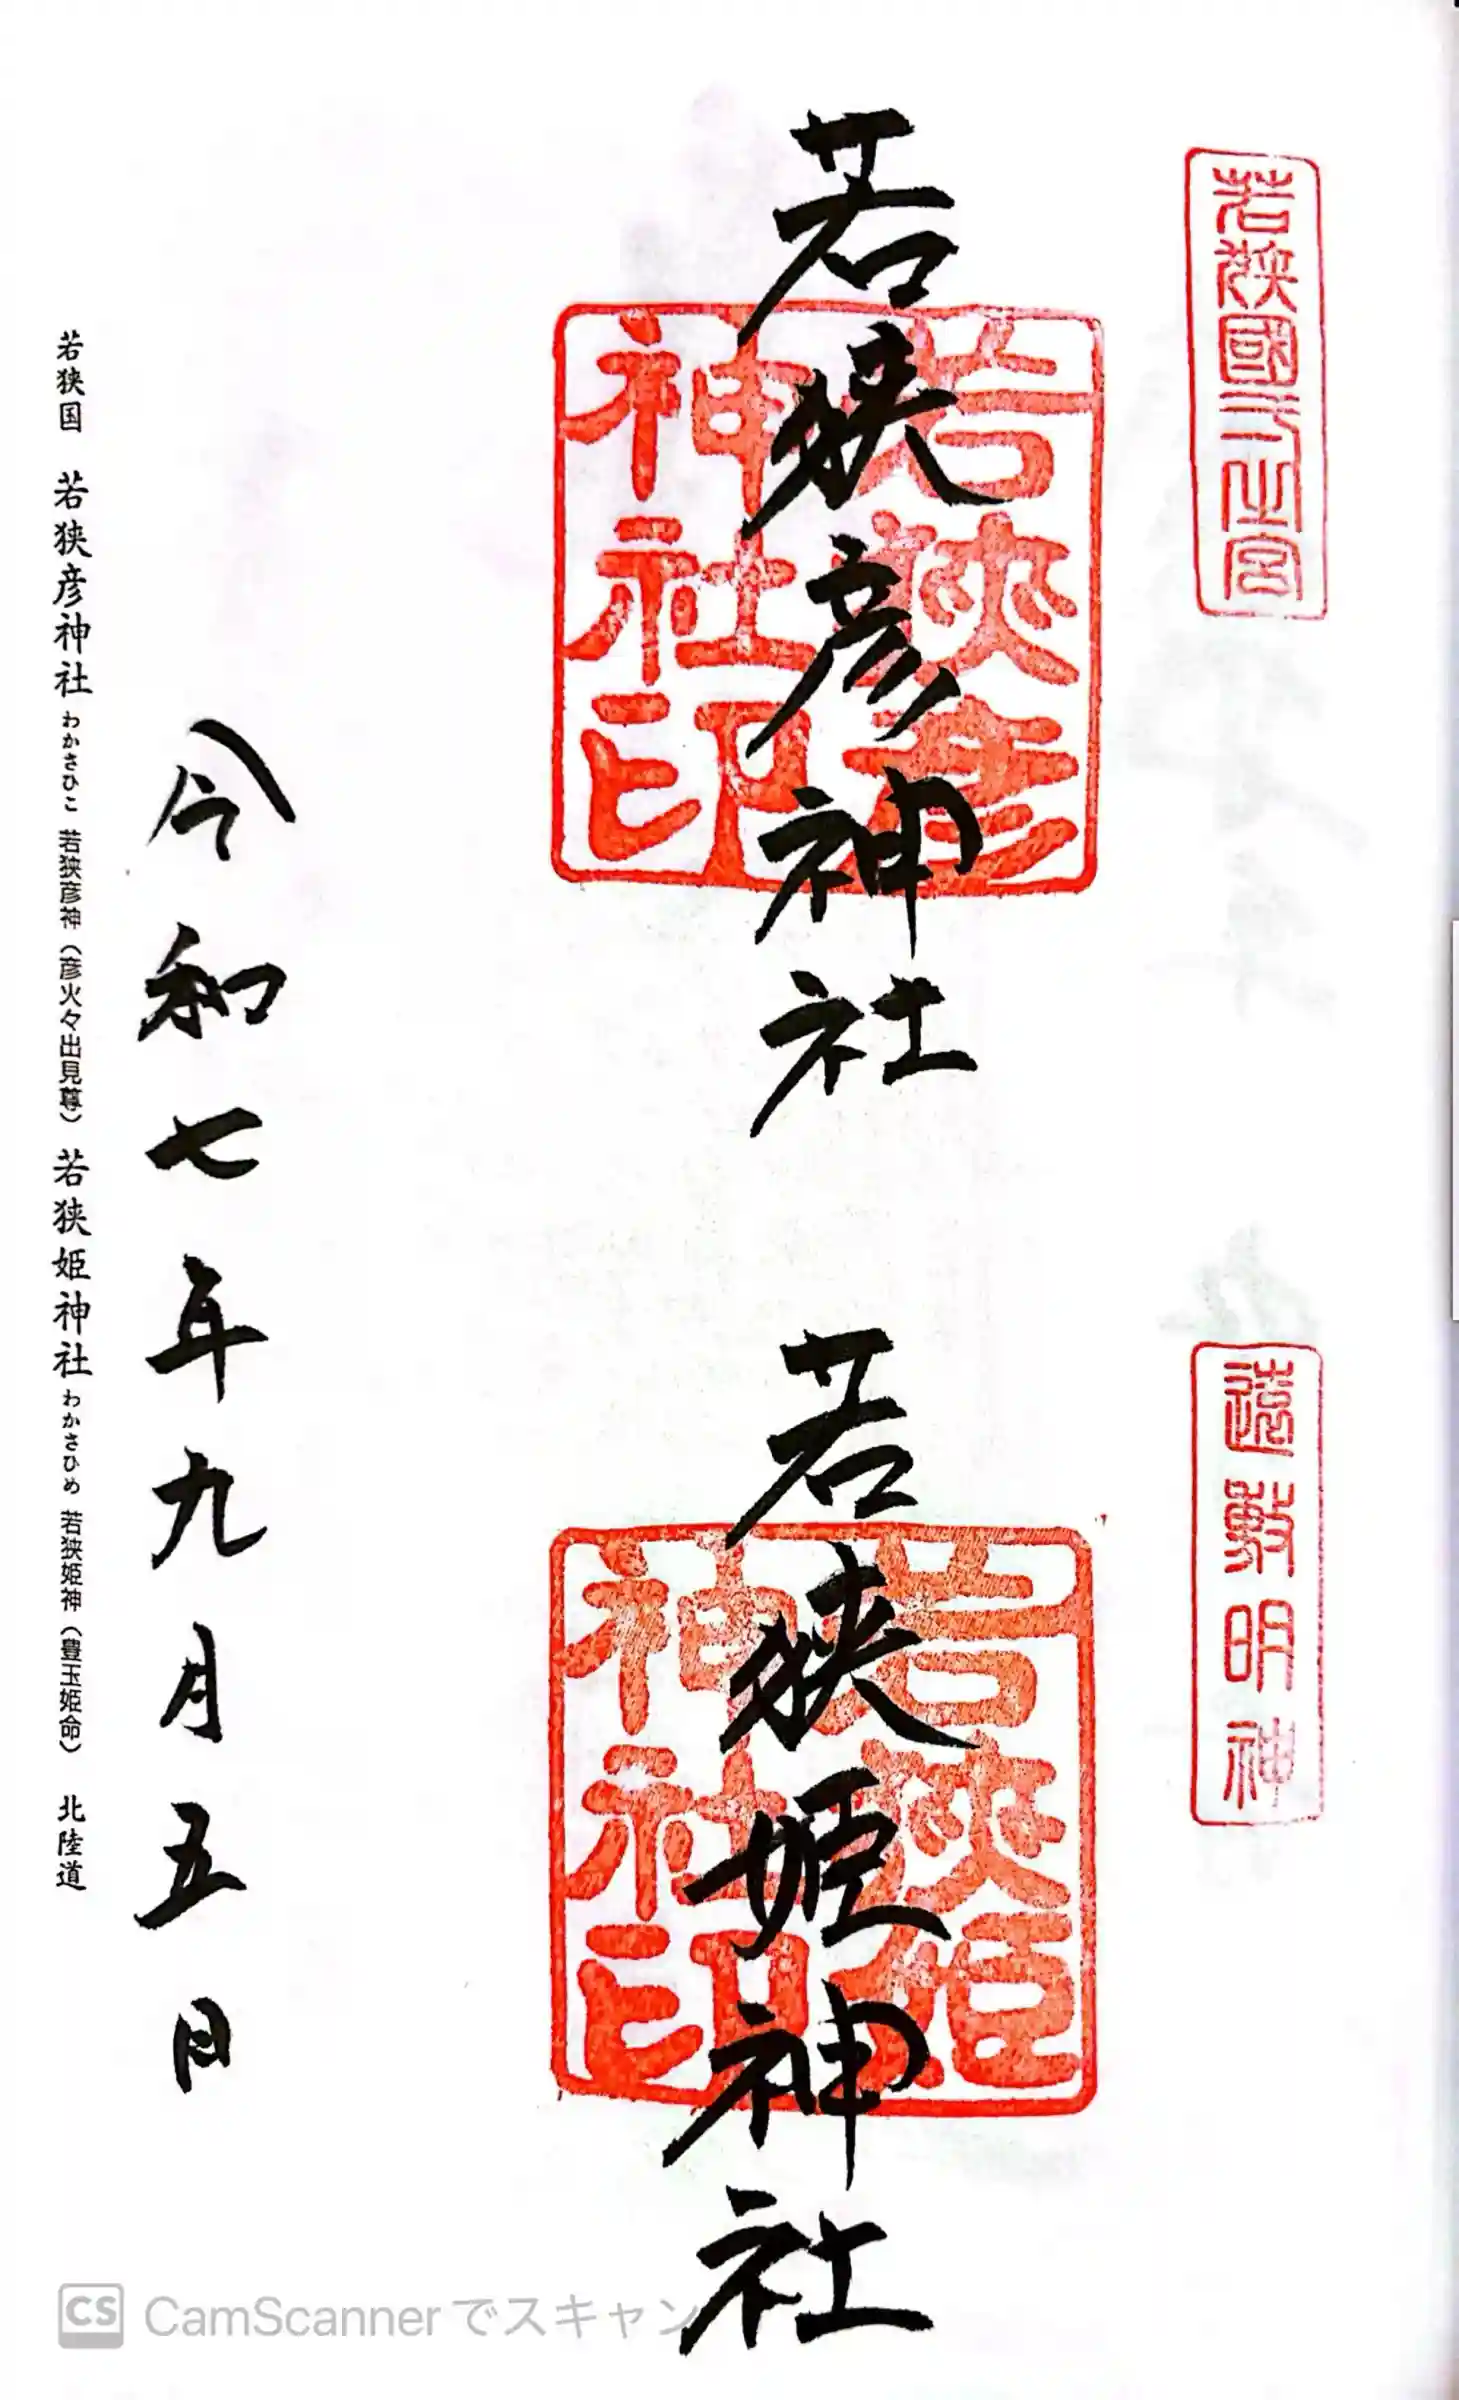 若狭國一之宮
遠敷明神
若狭彦神社
若狭姫神社
若狭彦
神社印
若狭姫
神社印
令和七年九月五日
若狭国 若狭彦神社 わかさひこ 若狭彦神（彦火々出見尊） 若狭姫神社 わかさひめ 若狭姫神（豊玉姫命） 北陸道
CS CamScannerでスキャン